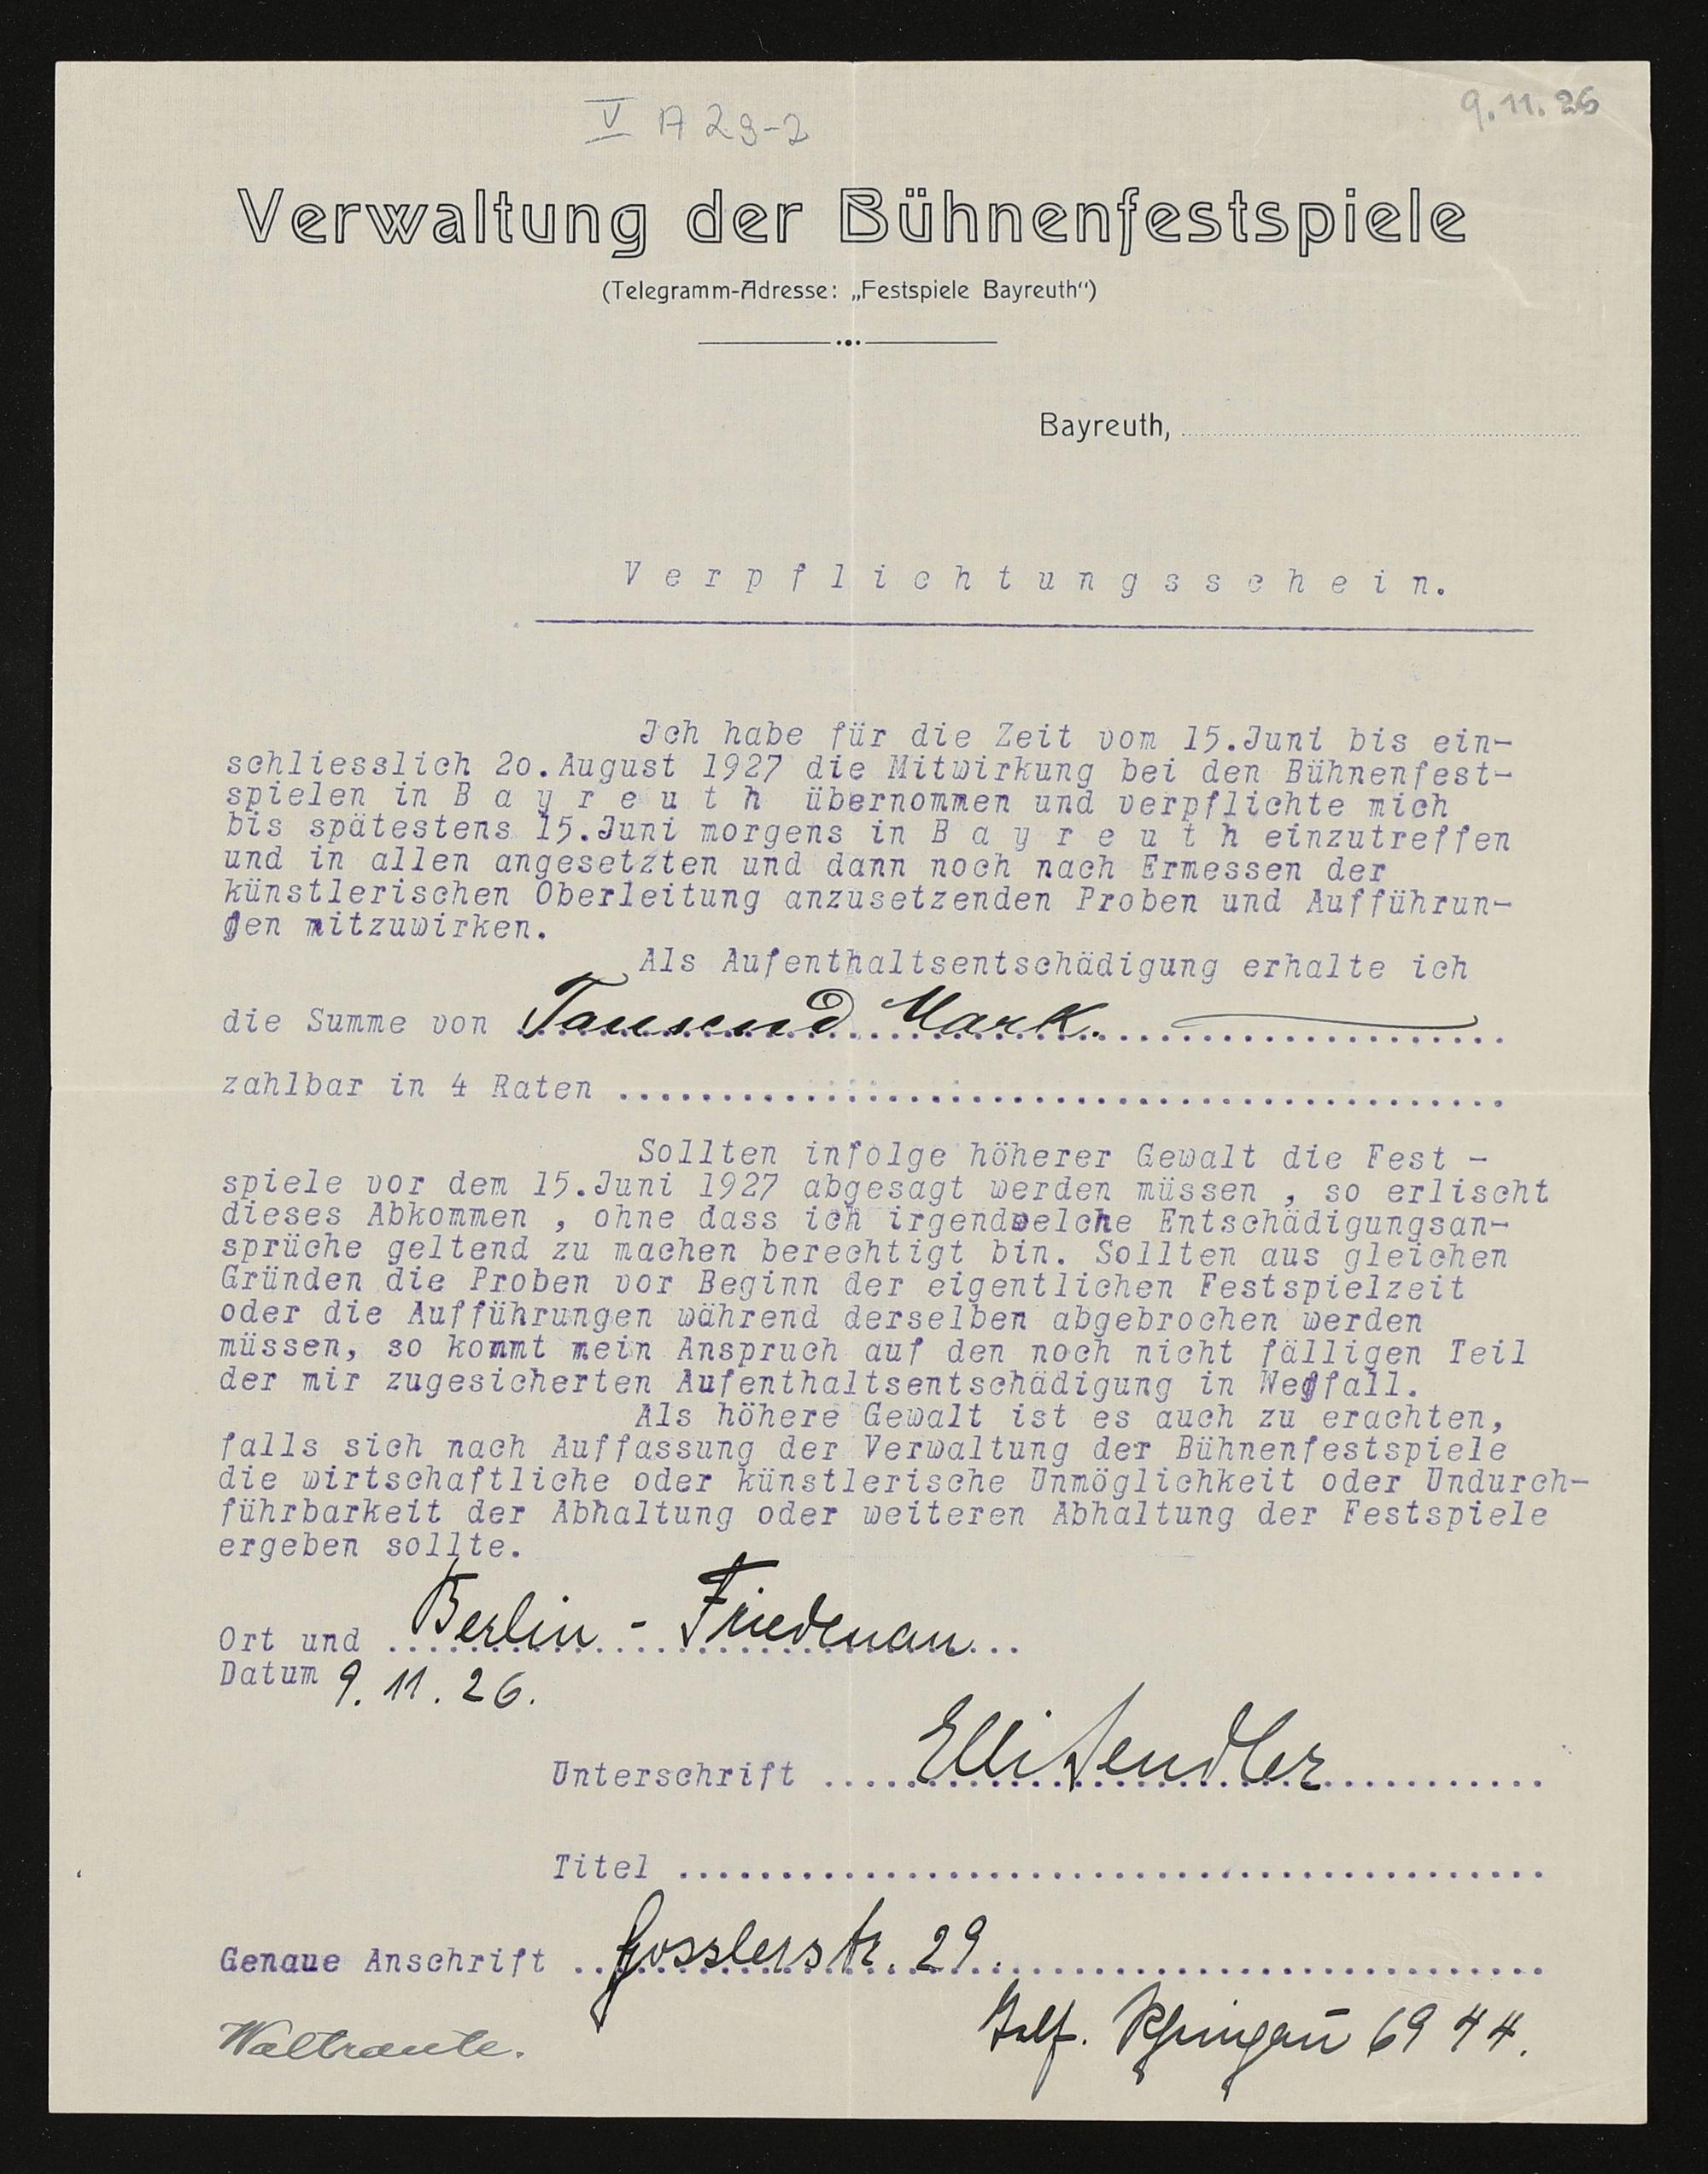 V A 29-2
9.11.26
Verwaltung der Bühnenfestspiele
(Telegramm-Adresse: „Festspiele Bayreuth“)
Bayreuth,
Verpflichtungsschein.
Ich habe für die Zeit vom 15.Juni bis ein-
schliesslich 2o.August 1927 die Mitwirkung bei den Bühnenfest-
spielen in B a y r e u t h übernommen und verpflichte mich
bis spätestens 15.Juni morgens in B a y r e u t h einzutreffen
und in allen angesetzten und dann noch nach Ermessen der
künstlerischen Oberleitung anzusetzenden Proben und Aufführun-
gen mitzuwirken.
Als Aufenthaltsentschädigung erhalte ich
die Summe von Tausend Mark.
zahlbar in 4 Raten
Sollten infolge höherer Gewalt die Fest -
spiele vor dem 15.Juni 1927 abgesagt werden müssen , so erlischt
dieses Abkommen , ohne dass ich irgendwelche Entschädigungsan-
sprüche geltend zu machen berechtigt bin. Sollten aus gleichen
Gründen die Proben vor Beginn der eigentlichen Festspielzeit
oder die Aufführungen während derselben abgebrochen werden
müssen, so kommt mein Anspruch auf den noch nicht fälligen Teil
der mir zugesicherten Aufenthaltsentschädigung in Wegfall.
Als höhere Gewalt ist es auch zu erachten,
falls sich nach Auffassung der Verwaltung der Bühnenfestspiele
die wirtschaftliche oder künstlerische Unmöglichkeit oder Undurch-
führbarkeit der Abhaltung oder weiteren Abhaltung der Festspiele
ergeben sollte.
Ort und Berlin - Friedenau
Datum 9. 11. 26.
Unterschrift Elli Sendler
Titel
Genaue Anschrift Gosslerstr. 29.
Waltraute.
Telf. Rheingau 69 44.